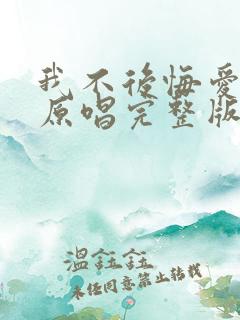 我不後悔愛
原唱完整版
溫鈺鈺
未经同意禁止转载